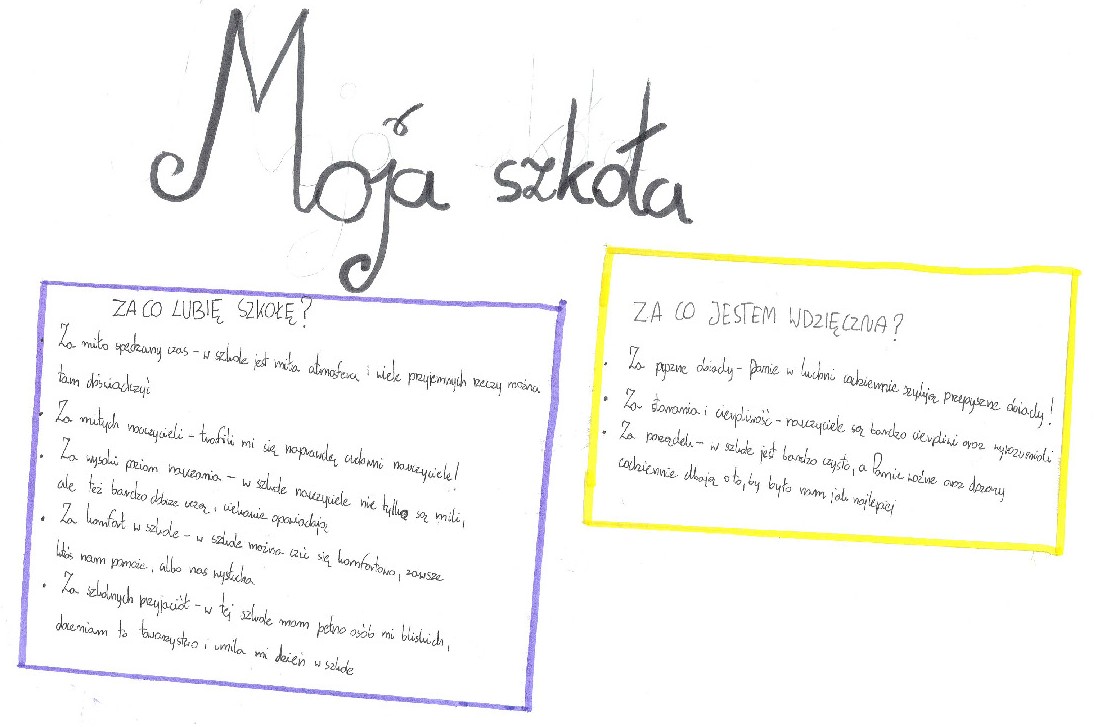 Moja szkoła
ZA CO LUBIĘ SZKOŁĘ?
• Za miło spędzany czas - w szkole jest miła atmosfera i wiele przyjemnych rzeczy można
tam doświadczyć
• Za miłych nauczycieli - trafili mi się naprawdę cudowni nauczyciele!
• Za wysoki poziom nauczania - w szkole nauczyciele nie tylko są mili,
ale też bardzo dobrze uczą, ciekawie opowiadają
• Za komfort w szkole - w szkole można czuć się komfortowo, zawsze
ktoś nam pomoże, albo nas wysłucha
• Za szkolnych przyjaciół - w tej szkole mam pełno osób mi bliskich,
doceniam to towarzystwo i umila mi dzień w szkole
ZA CO JESTEM WDZIĘCZNA?
• Za pyszne obiady - Panie w kuchni codziennie szykują przepyszne obiady!
• Za starania i cierpliwość - nauczyciele są bardzo cierpliwi oraz wyrozumiali
• Za porządek - w szkole jest bardzo czysto, a Panie woźne oraz dozorcy
codziennie dbają o to, by było nam jak najlepiej